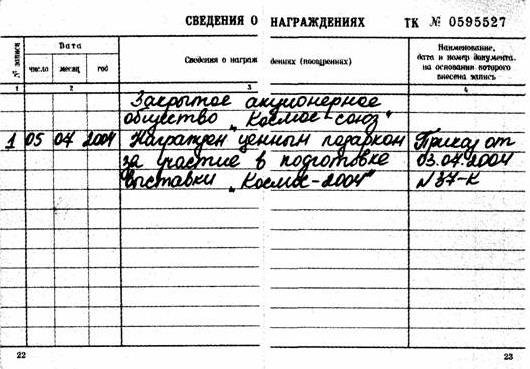 СВЕДЕНИЯ О НАГРАЖДЕНИЯХ ТК № 0595527
№ записи
Дата
число месяц год
Сведения о награждениях (поощрениях)
Наименование,
дата и номер документа,
на основании которого
внесена запись
1 2 3 4
Закрытое акционерное
общество „Космос-союз"
1 05 04 2004 Награжден ценным подарком Приказ от
за участие в подготовке 03.04.2004
выставки „Космос-2004" № 37-К
22 23